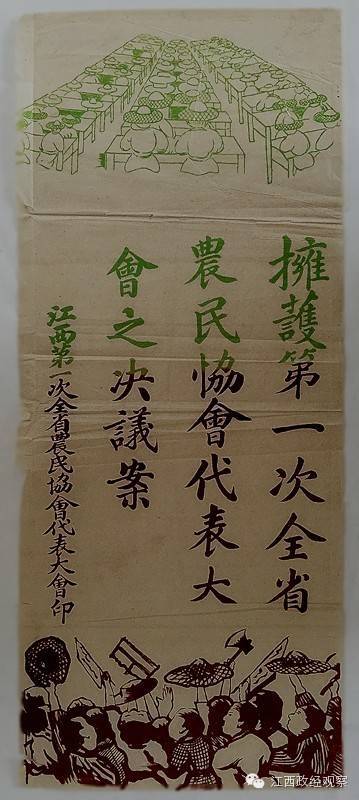 擁護第一次全省
農民協會代表大
會之决議案
江西第一次全省農民協會代表大會印
江西政经观察